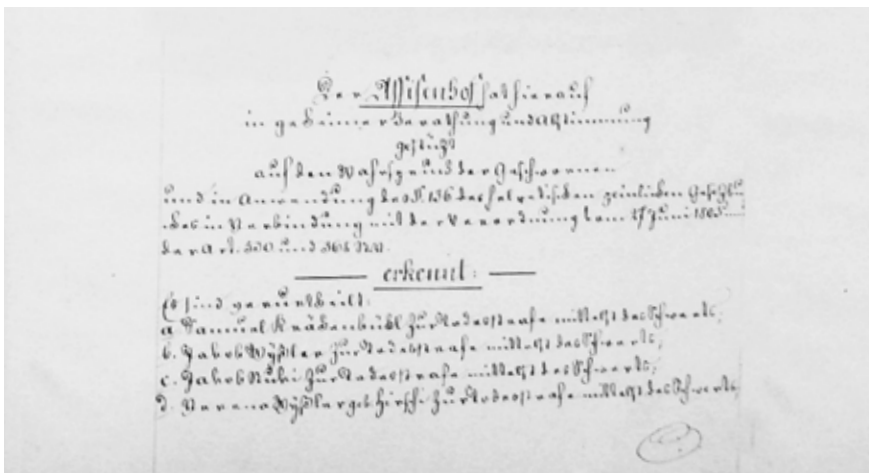 Der Assisenhof hat hierauf
in geheimer Berathung und Abstimmung
gestüzt
auf den Wahrspruch der Geschwornen
und in Anwendung des § 136 des helvetischen peinlichen Gesetzbu
ches in Verbindung mit der Verordnung vom 27 Juni 1803
der Art. und 368
erkennt:
Es sind verurtheilt:
a Samuel Krähenbühl zur Todesstrafe mittelst des Schwerts;
b. Jakob Wyßler zur Todesstrafe mittelst des Schwerts;
c. Jakob Stucki zur Todesstrafe mittelst des Schwerts;
d. Verena Wyßler geb. Hirschi zur Todesstrafe mittelst des Schwerts;